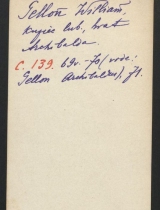 Tellon William,
kupiec lub., brat
Archibalda
C. 139. 69v.-70 (vide:
Tellon Archibaldus), 71.